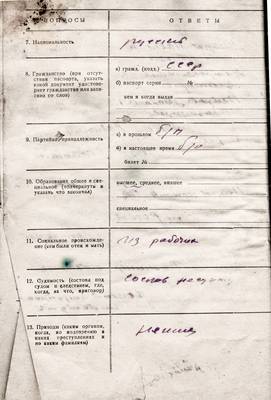 ВОПРОСЫ
ОТВЕТЫ
7. Национальность
русский
8. Гражданство (при отсут-
ствии паспорта, указать
какой документ удостове-
ряет гражданство или запи-
сано со слов)
а) гражд. (подд.) СССР
б) паспорт серия № 
кем и когда выдан
9. Партийная принадлежность
а) в прошлом б/п
б) в настоящее время б/п
билет №
10. Образование общее и спе-
циальное (подчеркнуть и
указать что закончил)
высшее, среднее, низшее
специальное
11. Социальное происхожде-
ние (кем были отец и мать)
из рабочих
12. Судимость (состоял под
судом и следствием, где,
когда, за что, приговор)
13. Приводы (каким органом,
когда, по подозрению в
каких преступлениях и
по каким фамилиям)